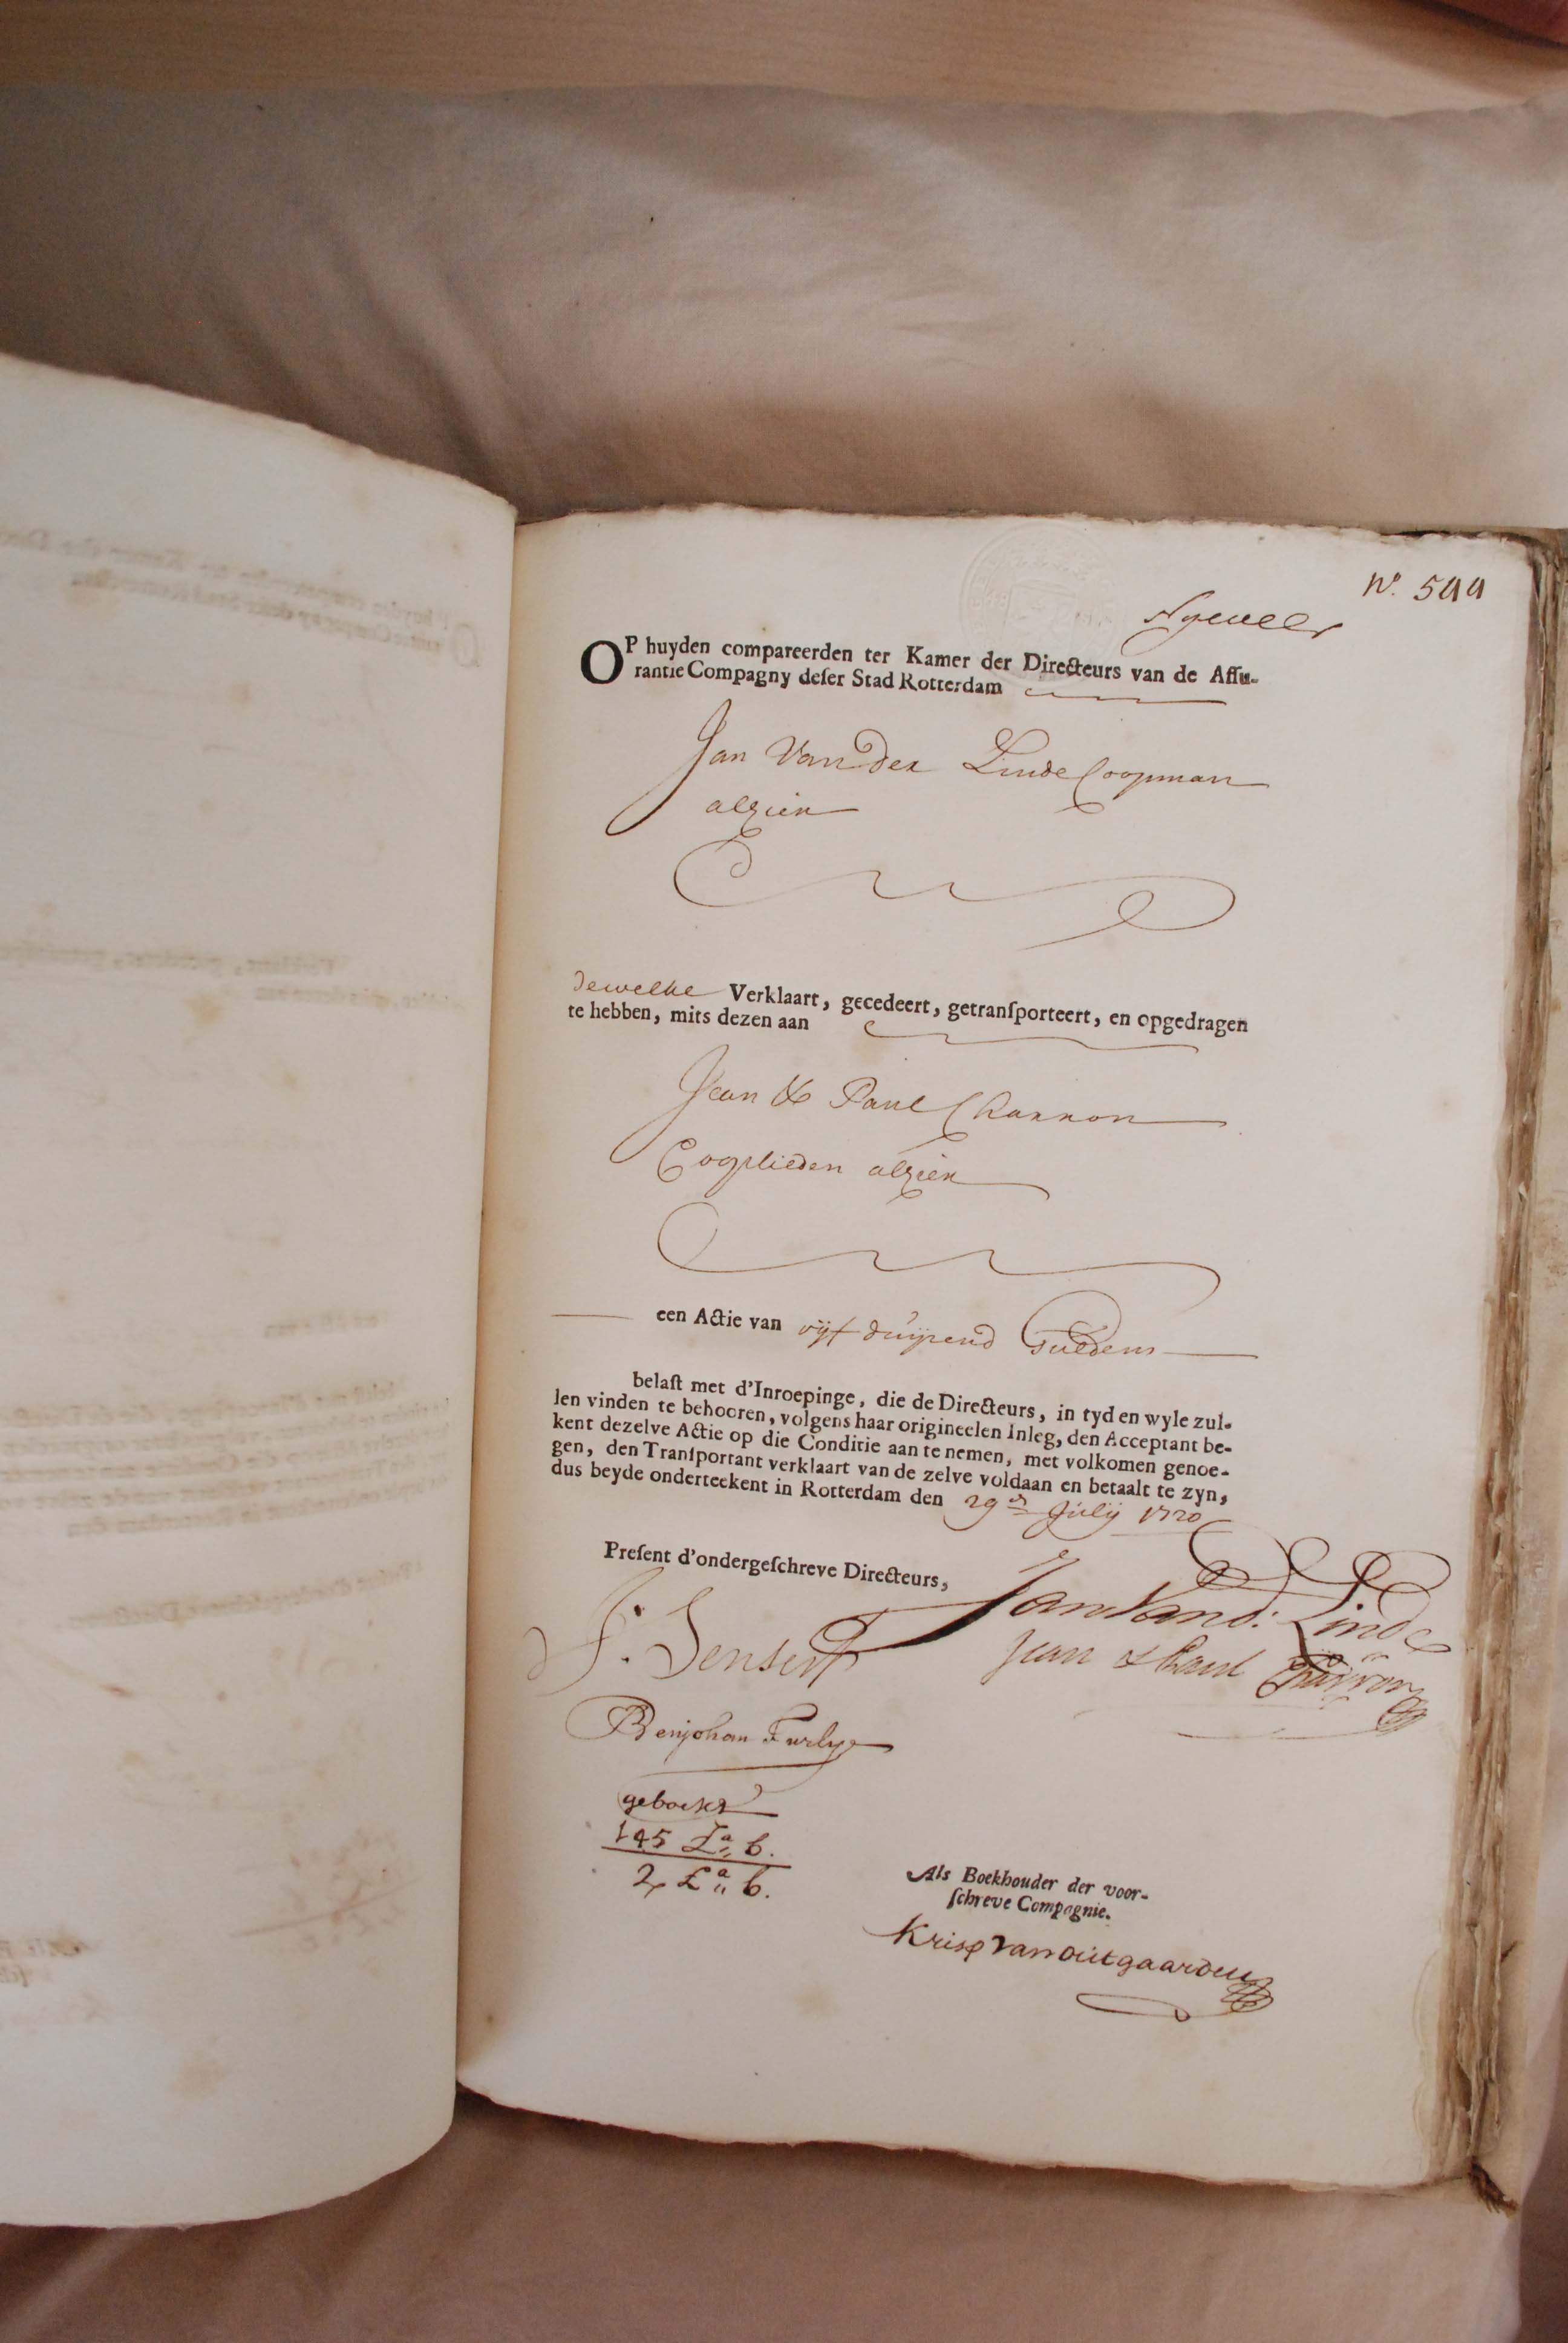 No. 544
OP huyden compareerden ter Kamer der Directeurs van de Assu-
rantie Compagny deser Stad Rotterdam
Jan Van Der Linde Coopman
alhier
dewelke Verklaart, gecedeert, getransporteert, en opgedragen
te hebben, mits dezen aan
Jean & Paul Charron
Cooplieden alhier
een Actie van vijf duijsend Guldens
belast met d'Inroepinge, die de Directeurs, in tyd en wyle zul-
len vinden te behooren, volgens haar origineelen Inleg, den Acceptant be-
kent dezelve Actie op die Conditie aan te nemen, met volkomen genoe-
gen, den Transportant verklaart van de zelve voldaan en betaalt te zyn,
dus beyde onderteekent in Rotterdam den 29e Julij 1720
Present d'ondergeschreve Directeurs,
Jan Vand: Linde
J: Senserf
Jean & Paul Charron
Benjohan Furly
geboekt
145 La b.
2 La b.
Als Boekhouder der voor-
schreve Compagnie.
Krisp Van Outgaarden